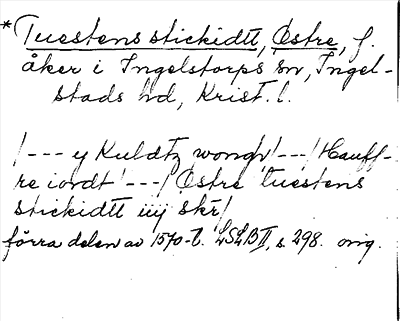 *Tuestens stickidtt, Östre, f.
åker i Ingelstorps sn, Ingel-
stads hd, Krist. l.
/--- y Kuldtz wongh/---/Hauff-
re iordt /---/ Östre tuestens
stickidtt iiij skr/
förra delen av 1570-t. LSLB II, s. 298. orig.